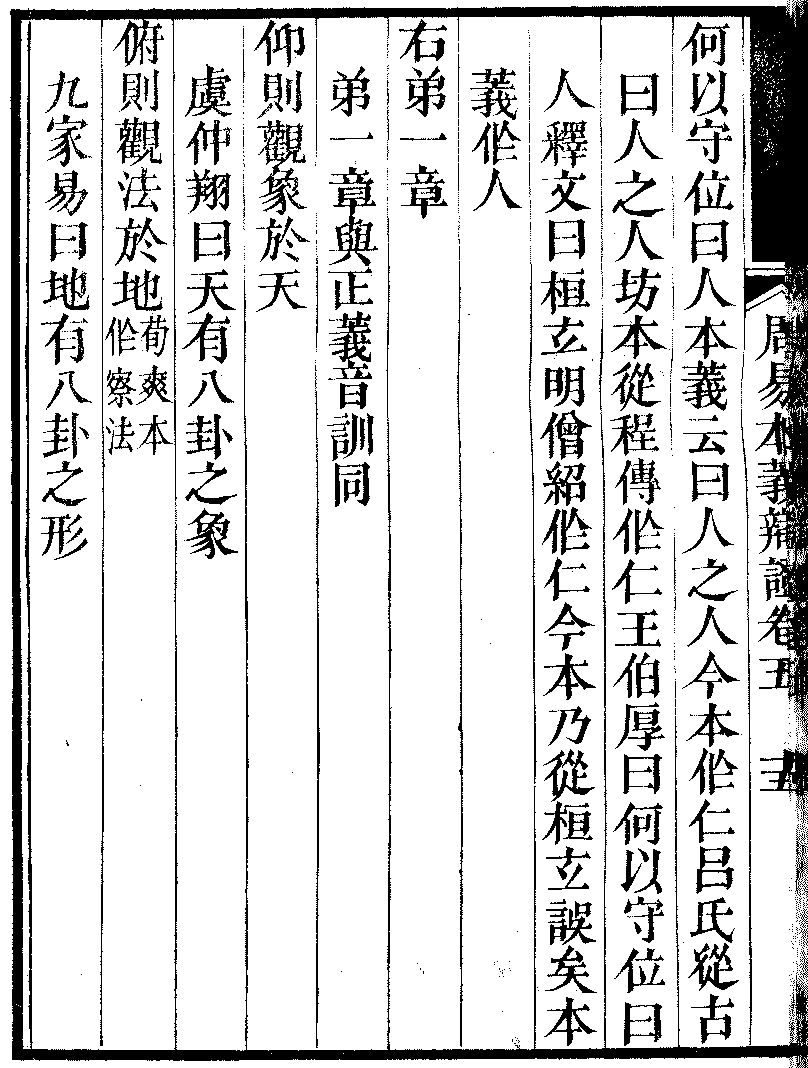 周易本義辯證卷五
何以守位曰人本義云曰人之人今本作仁呂氏從古
曰人之人坊本從程傳作仁王伯厚曰何以守位曰
人釋文曰桓玄明僧紹作仁今本乃從桓玄誤矣本
義作人
右弟一章
弟一章與正義音訓同
仰則觀象於天
虞仲翔曰天有八卦之象
俯則觀法於地荀爽本作察法
九家易曰地有八卦之形